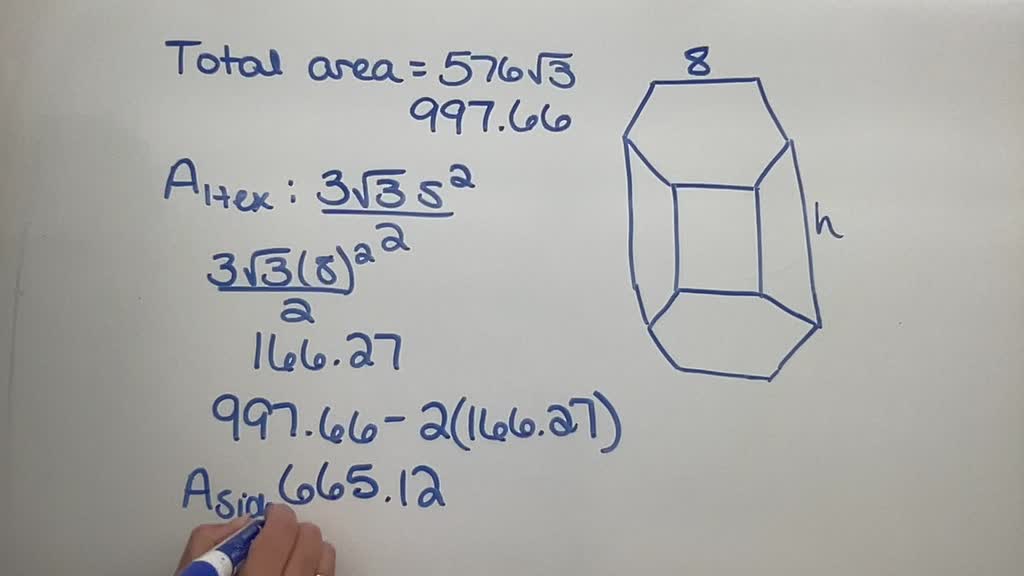 Total area = 576√3
997.66
A Hex : 3√3 s²
2
3√3(8)²
2
166.27
997.66 - 2(166.27)
A 665.12
8
h